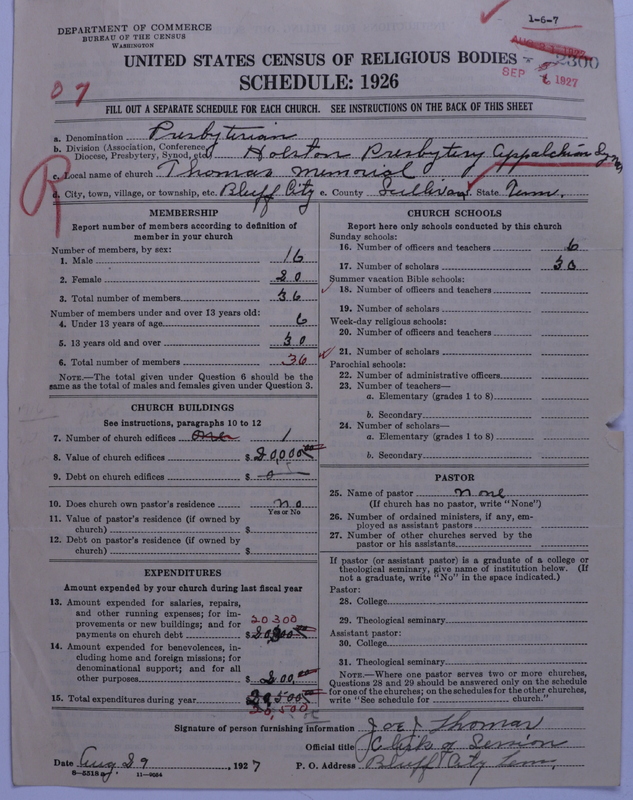 1-6-7
DEPARTMENT OF COMMERCE
BUREAU OF THE CENSUS
WASHINGTON
2300
UNITED STATES CENSUS OF RELIGIOUS BODIES
SEP 1927
SCHEDULE: 1926
07
FILL OUT A SEPARATE SCHEDULE FOR EACH CHURCH. SEE INSTRUCTIONS ON THE BACK OF THIS SHEET
a. Denomination Presbyterian
b. Division (Association, Conference,
Diocese, Presbytery, Synod, etc.) Holston Presbytery Appalchian Synod
c. Local name of church Thomas Memorial
d. City, town, village, or township, etc. Bluff City e. County Sullivan f. State Tenn.
R
MEMBERSHIP
Report number of members according to definition of
member in your church
Number of members, by sex:
1. Male 16
2. Female 20
3. Total number of members 36
Number of members under and over 13 years old:
4. Under 13 years of age 6
5. 13 years old and over 30
6. Total number of members 36
NOTE.—The total given under Question 6 should be the
same as the total of males and females given under Question 3.
CHURCH BUILDINGS
See instructions, paragraphs 10 to 12
7. Number of church edifices one 1
8. Value of church edifices $ 20,000
9. Debt on church edifices $ 0
10. Does church own pastor's residence no
Yes or No
11. Value of pastor's residence (if owned by
church) $
12. Debt on pastor's residence (if owned by
church) $
EXPENDITURES
Amount expended by your church during last fiscal year
13. Amount expended for salaries, repairs,
and other running expenses; for im-
provements or new buildings; and for 20300
payments on church debt $
14. Amount expended for benevolences, in-
cluding home and foreign missions; for
denominational support; and for all
other purposes $ 200.00
15. Total expenditures during year $ 20,500
20,500
CHURCH SCHOOLS
Report here only schools conducted by this church
Sunday schools:
16. Number of officers and teachers 6
17. Number of scholars 30
Summer vacation Bible schools:
18. Number of officers and teachers
19. Number of scholars
Week-day religious schools:
20. Number of officers and teachers
21. Number of scholars
Parochial schools:
22. Number of administrative officers
23. Number of teachers—
a. Elementary (grades 1 to 8)
b. Secondary
24. Number of scholars—
a. Elementary (grades 1 to 8)
b. Secondary
PASTOR
25. Name of pastor none
(If church has no pastor, write "None")
26. Number of ordained ministers, if any, em-
ployed as assistant pastors
27. Number of other churches served by the
pastor or his assistants
If pastor (or assistant pastor) is a graduate of a college or
theological seminary, give name of institution below. (If
not a graduate, write "No" in the space indicated.)
Pastor:
28. College
29. Theological seminary
Assistant pastor:
30. College
31. Theological seminary
NOTE.—Where one pastor serves two or more churches,
Questions 28 and 29 should be answered only on the schedule
for one of the churches; on the schedules for the other churches,
write "See schedule for church."
Signature of person furnishing information Joe J Thomas
Official title Clerk of Session
Date Aug 29, 1927 P. O. Address Bluff City Tenn.
8—5518a 11—9064